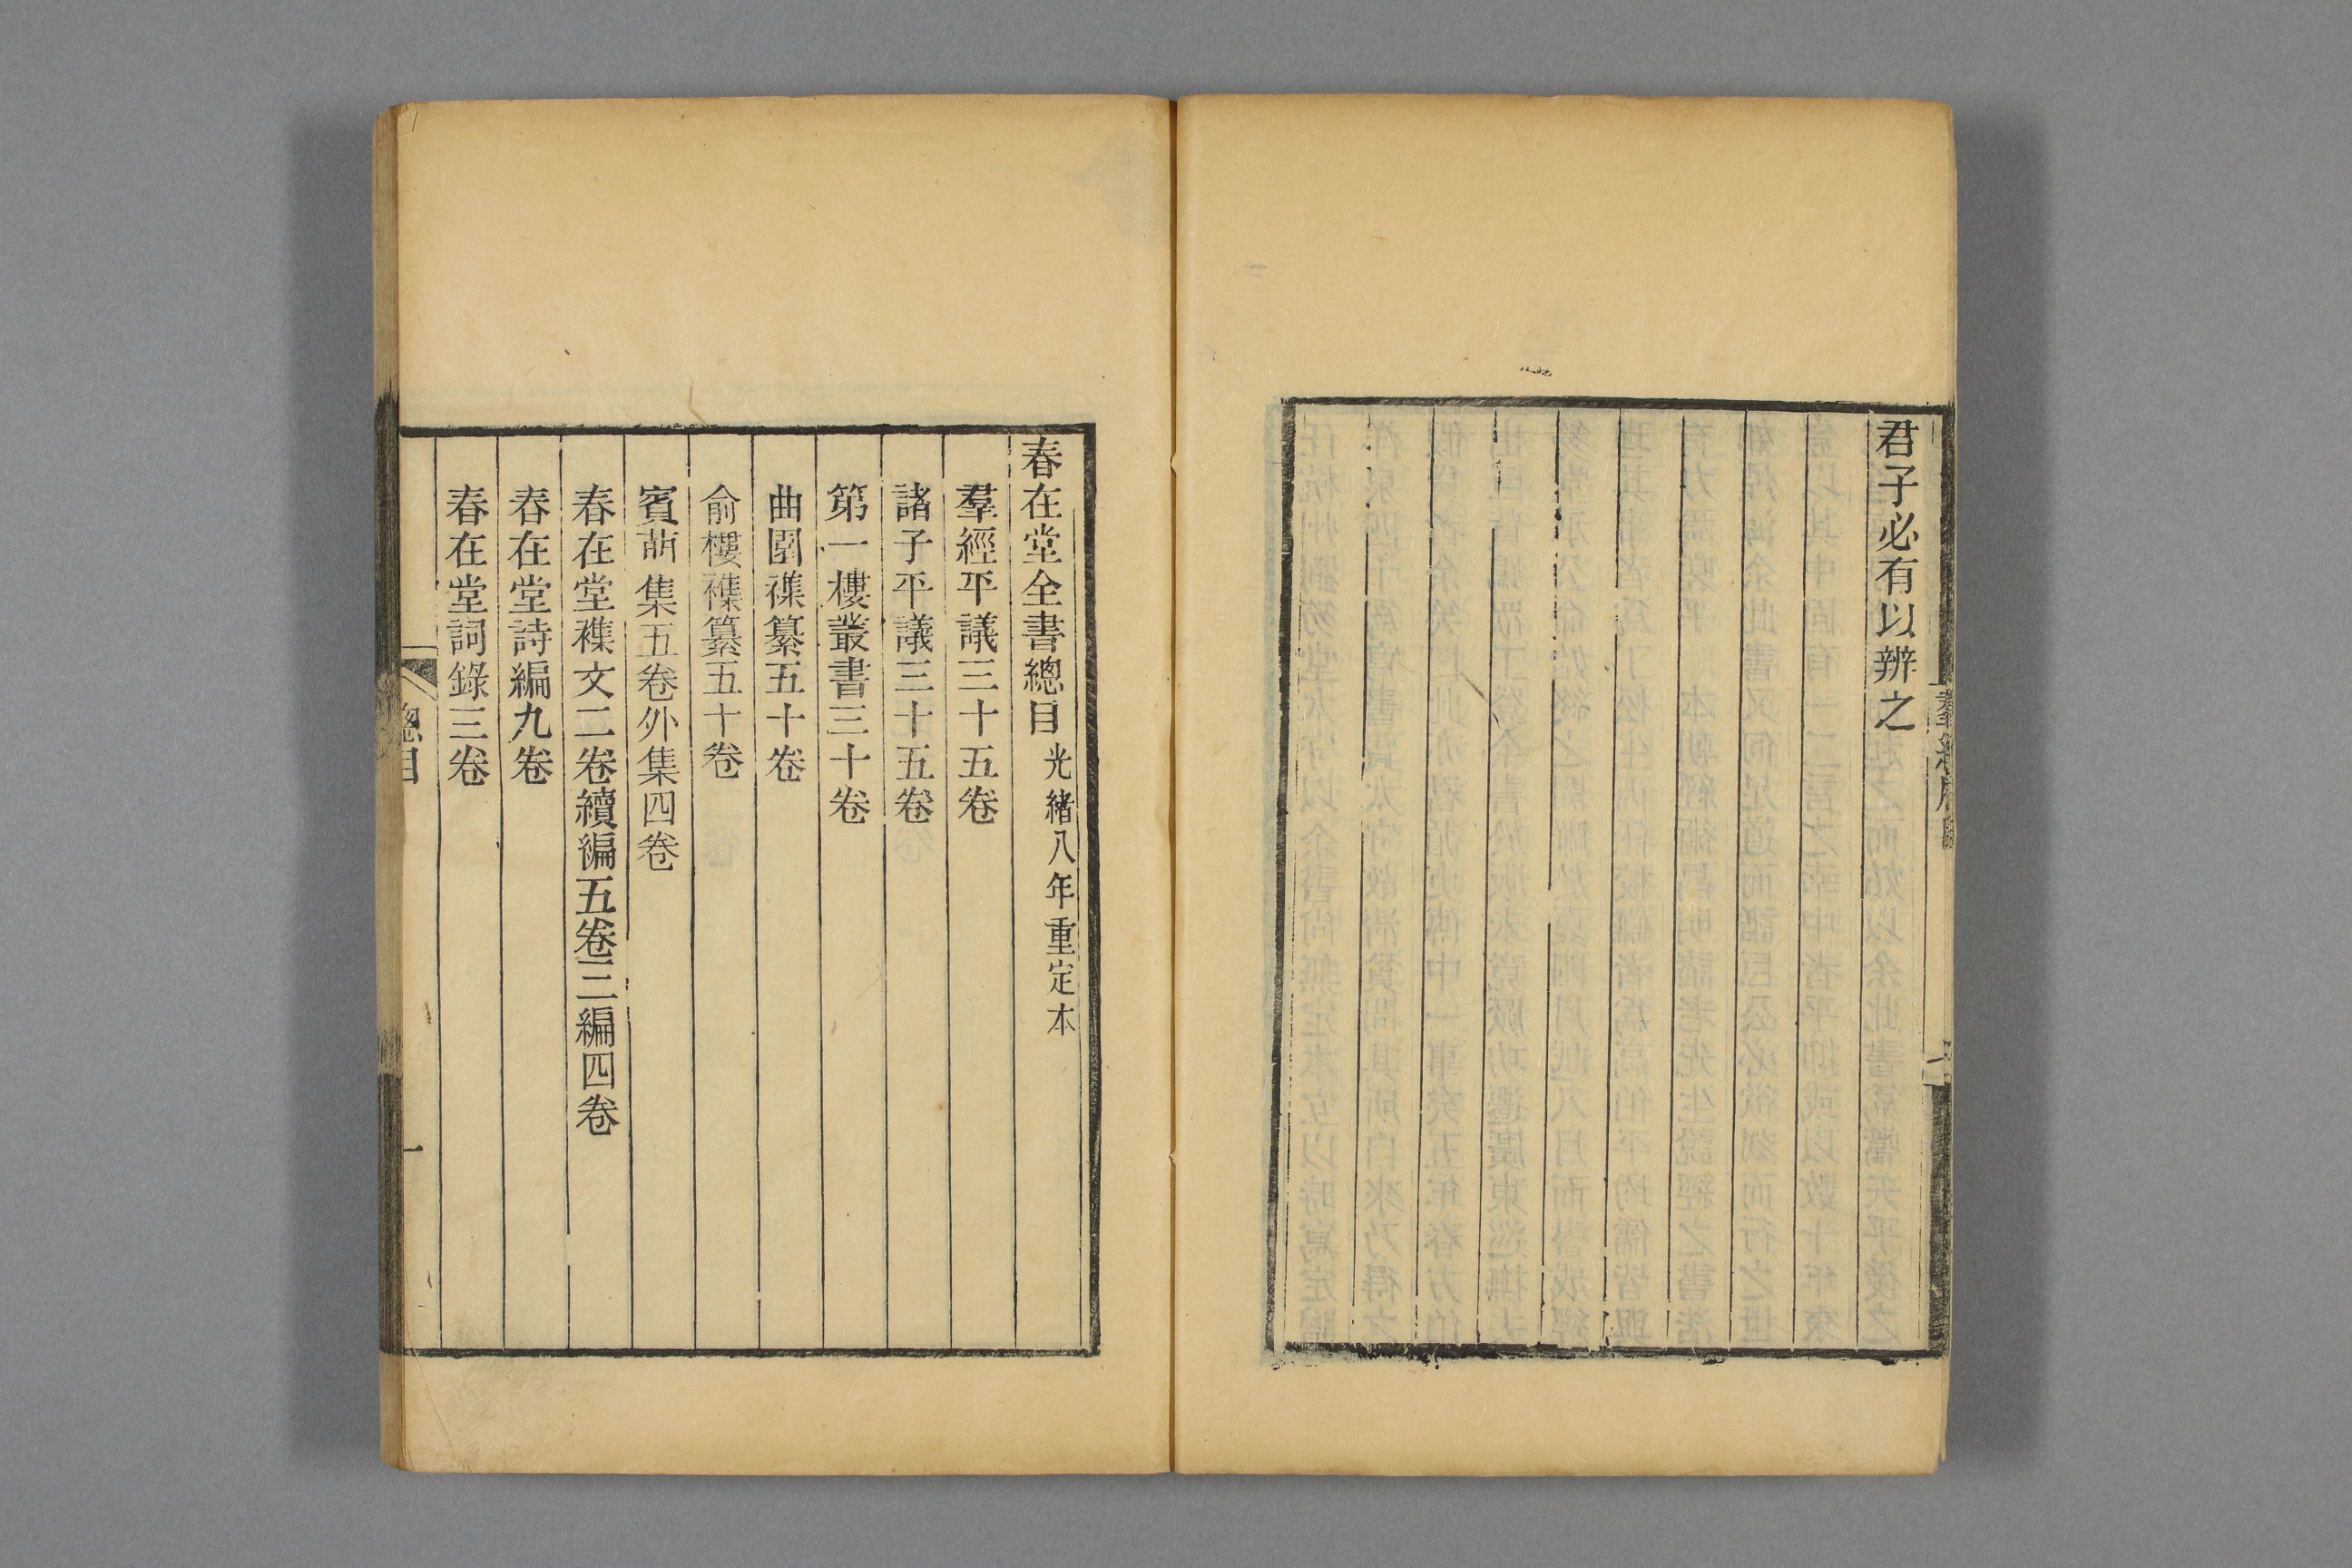 君子必有以辨之
春在堂全書總目 光緒八年重定本
羣經平議三十五卷
諸子平議三十五卷
第一樓叢書三十卷
曲園襍纂五十卷
俞樓襍纂五十卷
賓萌集五卷外集四卷
春在堂襍文二卷續編五卷三編四卷
春在堂詩編九卷
春在堂詞錄三卷
總目
一